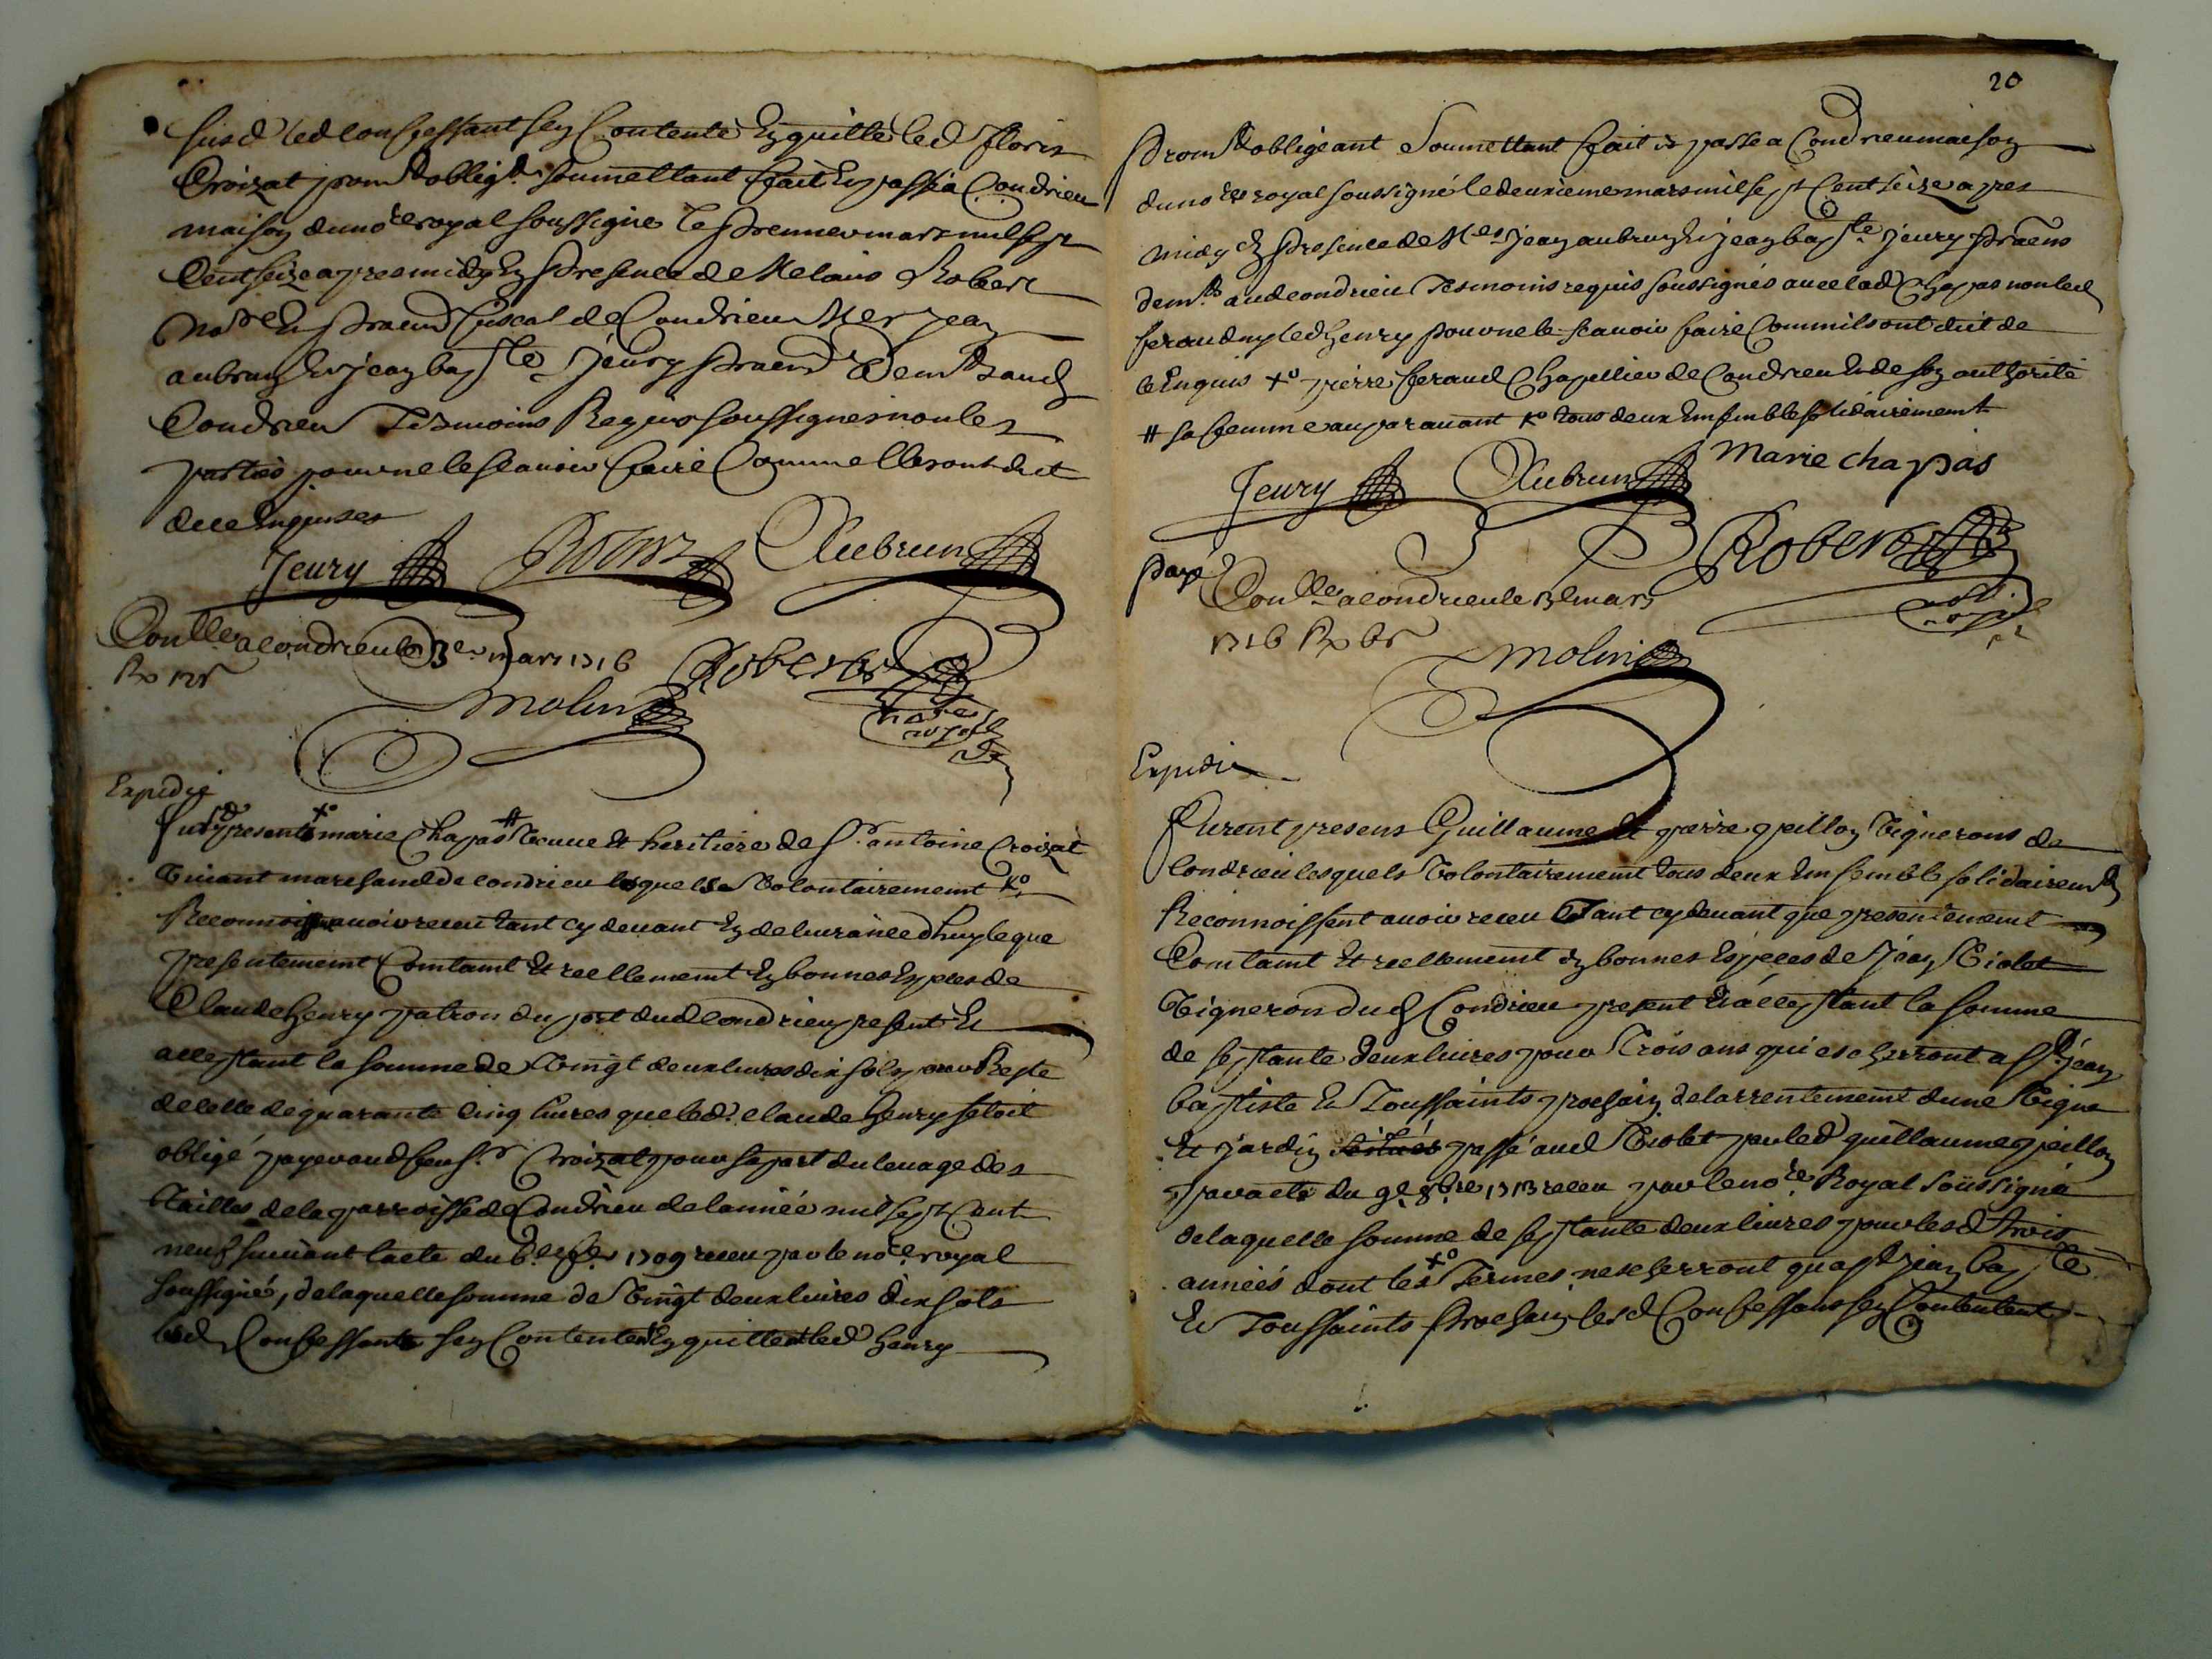 susd led confessant sen Contente En quitte led floris
Croizat prom.t oblig.t soumettant fait En passé a Condrieu
maison du no.re royal soussigné le premier mars mil sept
Cent seize apres midy En presence de Me Robert
No.re En fiscal de Condrieu Mes Jean
aubrun Et jean bap.te Jeury dem.ts aud
Condrieu Tesmoins Requis soussignes non les
parties pour ne le scauoir faire Comme elles ont dit
de ce Enquises
Jeury Robert Aubrun
Con.lle a condrieu le 3e mars 1716
Rx 12s
molin Robert
no.re royal
Expedié
fut presente x° marie Chapas # veuue Et heritiere de s.r antoine Croizat
viuant marchand de condrieu laquelle volontairement x°
Reconnoit auoir receu tant cy deuant En deliurance d'huyle que
presentement Comtamt Et reellement En bonnes Especes de
Claude henry patron du port dud condrieu present Et
acceptant la somme de vingt deux liures dix sols pour Reste
de celle de quarante cinq liures que led.t claude henry s'etoit
obligé payer aud feu s.r Croizat pour sa part du leuage des
Tailles de la parroisse de Condrieu de l'année mil sept Cent
neuf suiuant l'acte du 1709 receu par le no.re royal
soussigné, de laquelle somme de vingt deux liures dix sols
lesd Confessants sen Contentent En quittent led henry
20
prom.t obligeant Soumettant fait Et passé a Condrieu maison
du no.re royal soussigné le deuxieme mars mil sept Cent seize apres
midy En presence de Mes Jean aubrun Et jean bap.te jeury
dem.ts aud condrieu Tesmoins requis soussignés auec lad Chapas non led
feraud ny led henry pour ne le scauoir faire Comm'ils ont dit de
ce Enquis x° pierre feraud Chapellier de Condrieu Et de son authorité
# sa femme auparauant x° tous deux Ensemble solidairement
Jeury Aubrun Marie chapas
Robert
no.re royal
payé
Con.lle a condrieu le 3e mars
1716 Rx 6s
molin
Expedié
Furent presens Guillaume Et pierre peillon vignerons de
Condrieu lesquels volontairement tous deux Ensemble solidairem.t
Reconnoissent auoir receu Tant cy deuant que presentement
Comtamt Et reellement En bonnes Especes de Jean violet
vigneron dud Condrieu present Et acceptant la somme
de septante deux liures pour Trois ans qui escherront a s.t jean
baptiste Et Toussaints prochain de l'arrentement d'une vigne
Et jardin situés passé aud violet par led guillaume peillon
par acte du 9e 8bre 1713 receu par le no.re Royal soussigné
de laquelle somme de septante deux liures pour lesd trois
années dont les x° Termes n'escherront qu'a s.t jean bap.te
Et Toussaints prochain lesd Confessans sen Contentent